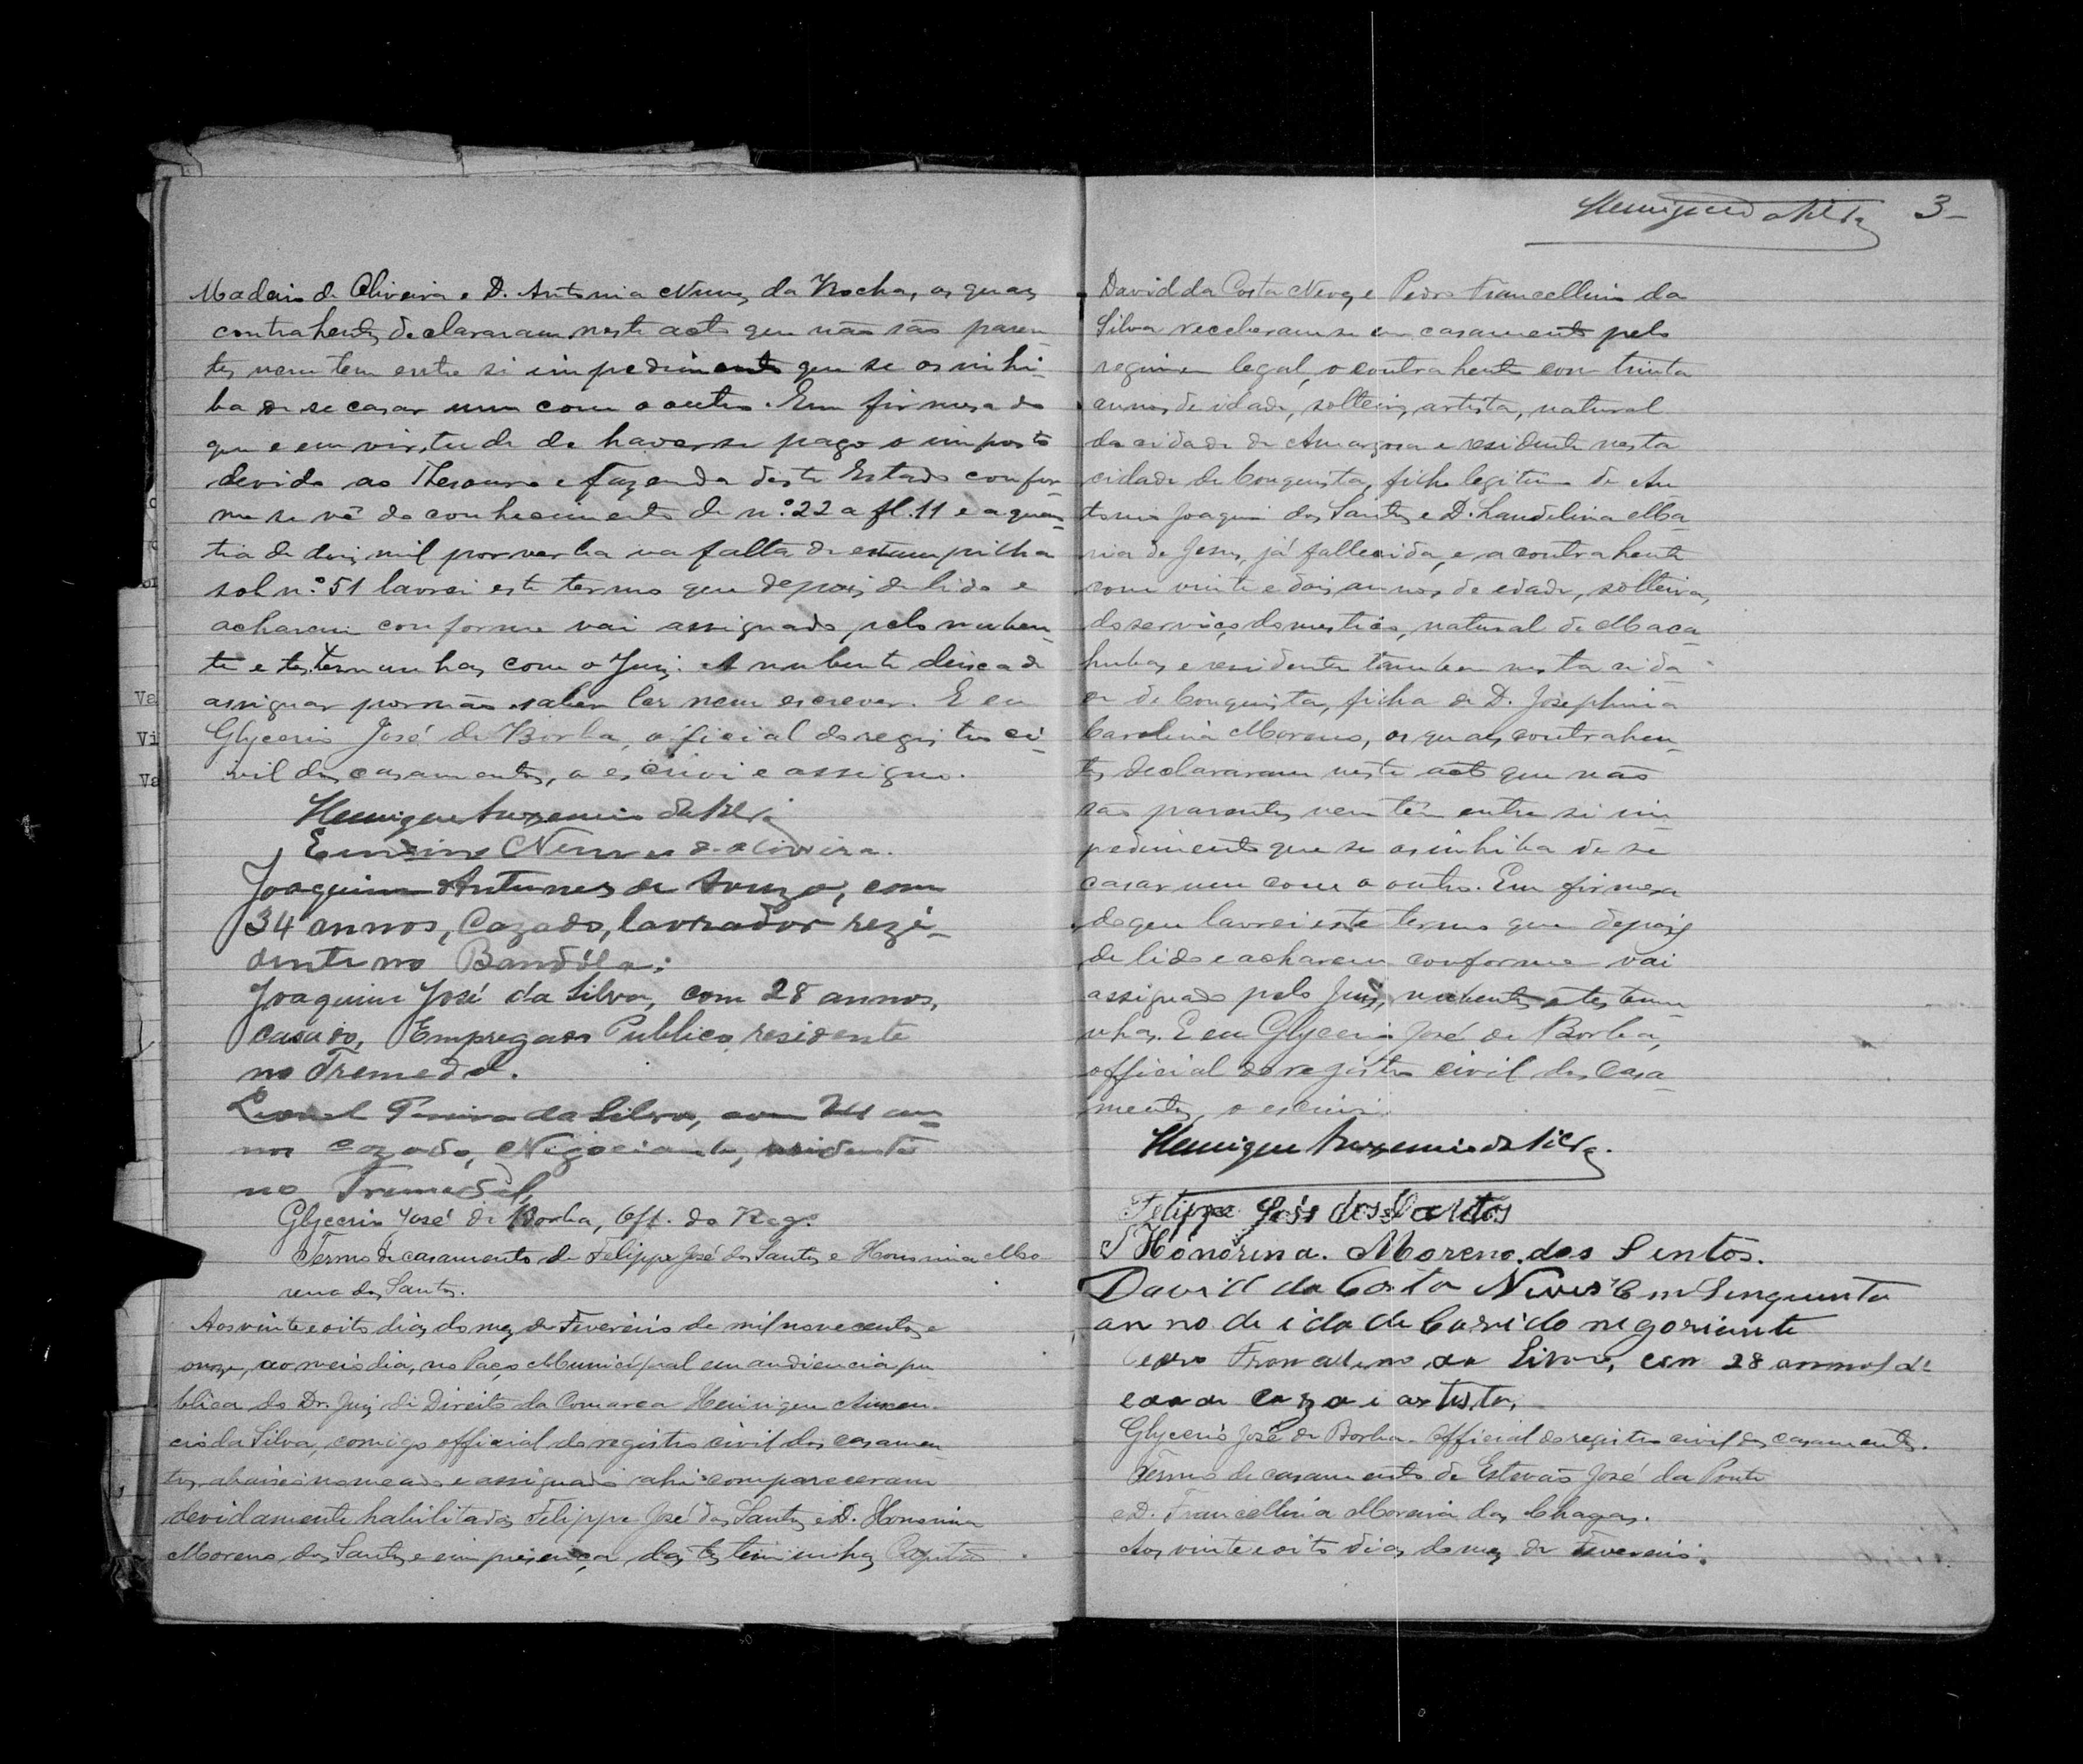 Madeira de Oliveira e D. Antonia Nunes da Rocha, os quaes
contrahentes declararam neste acto que não são paren-
tes nem tem entre si impedimento que se os inhi-
ba de se casar um com o outro. Em firmesa do
que e em virtude de haver se pago o imposto
devido ao Thesouro e fazenda deste Estado confor-
me se vê do conhecimento de n.º 22 a fl. 11 e a quan-
tia de dois mil por verba na falta de estampilha
sob n.º 51 lavrei este termo que depois de lido e
acharem conforme vai assignado pelo nuben-
te e testemunhas com o Juiz. A nubente deixa de
assignar por não saber ler nem escrever. E eu
Glycerio José de Borba, oficial do registro ci-
vil dos casamentos, o escrivi e assigno.
Henrique Auxencio da Silva
Nunes de Oliveira.
Joaquim Antunes de Souza, com
34 annos, Cazado, lavrador rezi-
dente no
Joaquim José da Silva, com 28 annos,
casado, Empregado Publico, residente
no Tremedal.
Leonel Pereira da Silva, com an-
nos cazado, Negociante, residente
no Tremedal,
Glycerio José de Borba, Off. do Reg.
Termo de casamento de Felippe José dos Santos e Honorina Mo-
reno dos Santos.
Aos vinte e oito dias do mez de Fevereiro de mil novecentos e
onze, ao meio dia, no Paço Municipal em audiencia pu-
blica do Dr. Juiz de Direito da Comarca Henrique Auxen-
cio da Silva, comigo official do registro civil dos casamen-
tos, abaixo nomeado e assignado ahi compareceram
devidamente habilitados Felippe José dos Santos e D. Honorina
Moreno dos Santos e em presença das testemunhas Capitão
Henrique da Silva 3-
David da Costa Neves e Pedro Francellino da
Silva receberam se em casamento pelo
regimen legal, o contrahente com trinta
annos de idade, solteiro, artista, natural
da cidade de Amargosa e residente nesta
cidade de Conquista, filho legitimo de An-
tonio Joaquim dos Santos e D. Laudelina Ma-
ria de Jesus, já fallecida, e a contrahente
com vinte e dois annos de edade, solteira,
do serviço domestico, natural de Maca-
hubas e residente tambem nesta cida-
de de Conquista, filha de D. Josephina
Carolina Moreno, os quaes contrahen-
tes declararam neste acto que não
são parentes nem têm entre si im-
pedimento que se os inhiba de se
casar um com o outro. Em firmesa
do que lavrei este termo que depois
de lido e acharem conforme vai
assignado pelo Juiz, nubentes e testemu-
nhas. E eu Glycerio José de Borba,
official do registro civil dos casa-
mentos, o escrivi.
Henrique Auxencio da Silva.
Felippe José dos Santos
Honorina. Moreno. dos Sintos.
David da Costa Neves Com Sinquenta
anno de idade Cazido negoriante
Pedro Francelino da Silva, com 28 annos de
edade cazo i artista,
Glycerio José de Borba. Official do registro civil dos casamentos.
Termo de casamento de Estevão José da Ponte
e D. Francellina Moreira das Chagas.
Aos vinte e oito dias do mez de Fevereiro.